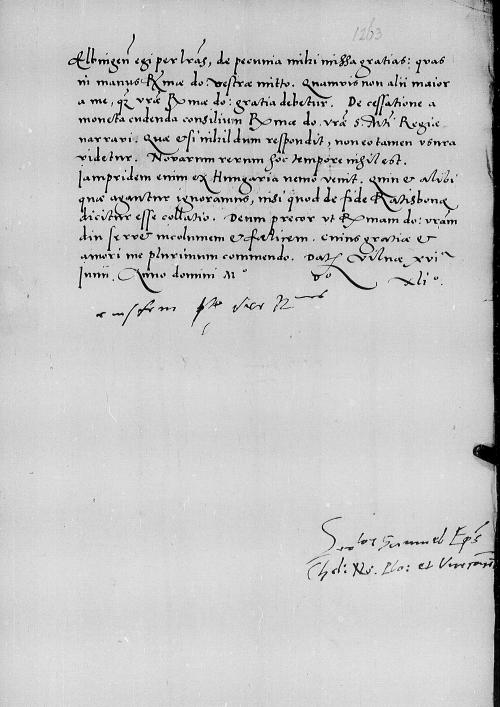 1263
Elbingeñ egi per lr̃as, de pecunia mihi missa gratias: quas
in manus R̃mae do: vestrae mitto. Quamvis non alij maior
a me, q̃ vr̃ae R̃mae do: gratia debetur. De cessatione a
moneta cudenda consilium R̃mae do. vr̃ae S. Mti Regiae
narravi. Quae etsi nihil dum respondit, non eo tamen usura
videtur. Novarum rerum hoc tempore nihil est.
Iampridem enim ex Hungaria nemo venit. Quin et alibi
quae agantur ignoramus, nisi quod de fide Ratisbonae
dicitur esse collatio. Deum precor ut R̃mam do: vr̃am
diu servet incolumem et felicem. Cuius gratiae et
amori me plurimum commendo. Dat Vilnae xvi
Iunii. Anno domini Mº Dº xliº.
eiusdem
Samuel Ep̃s